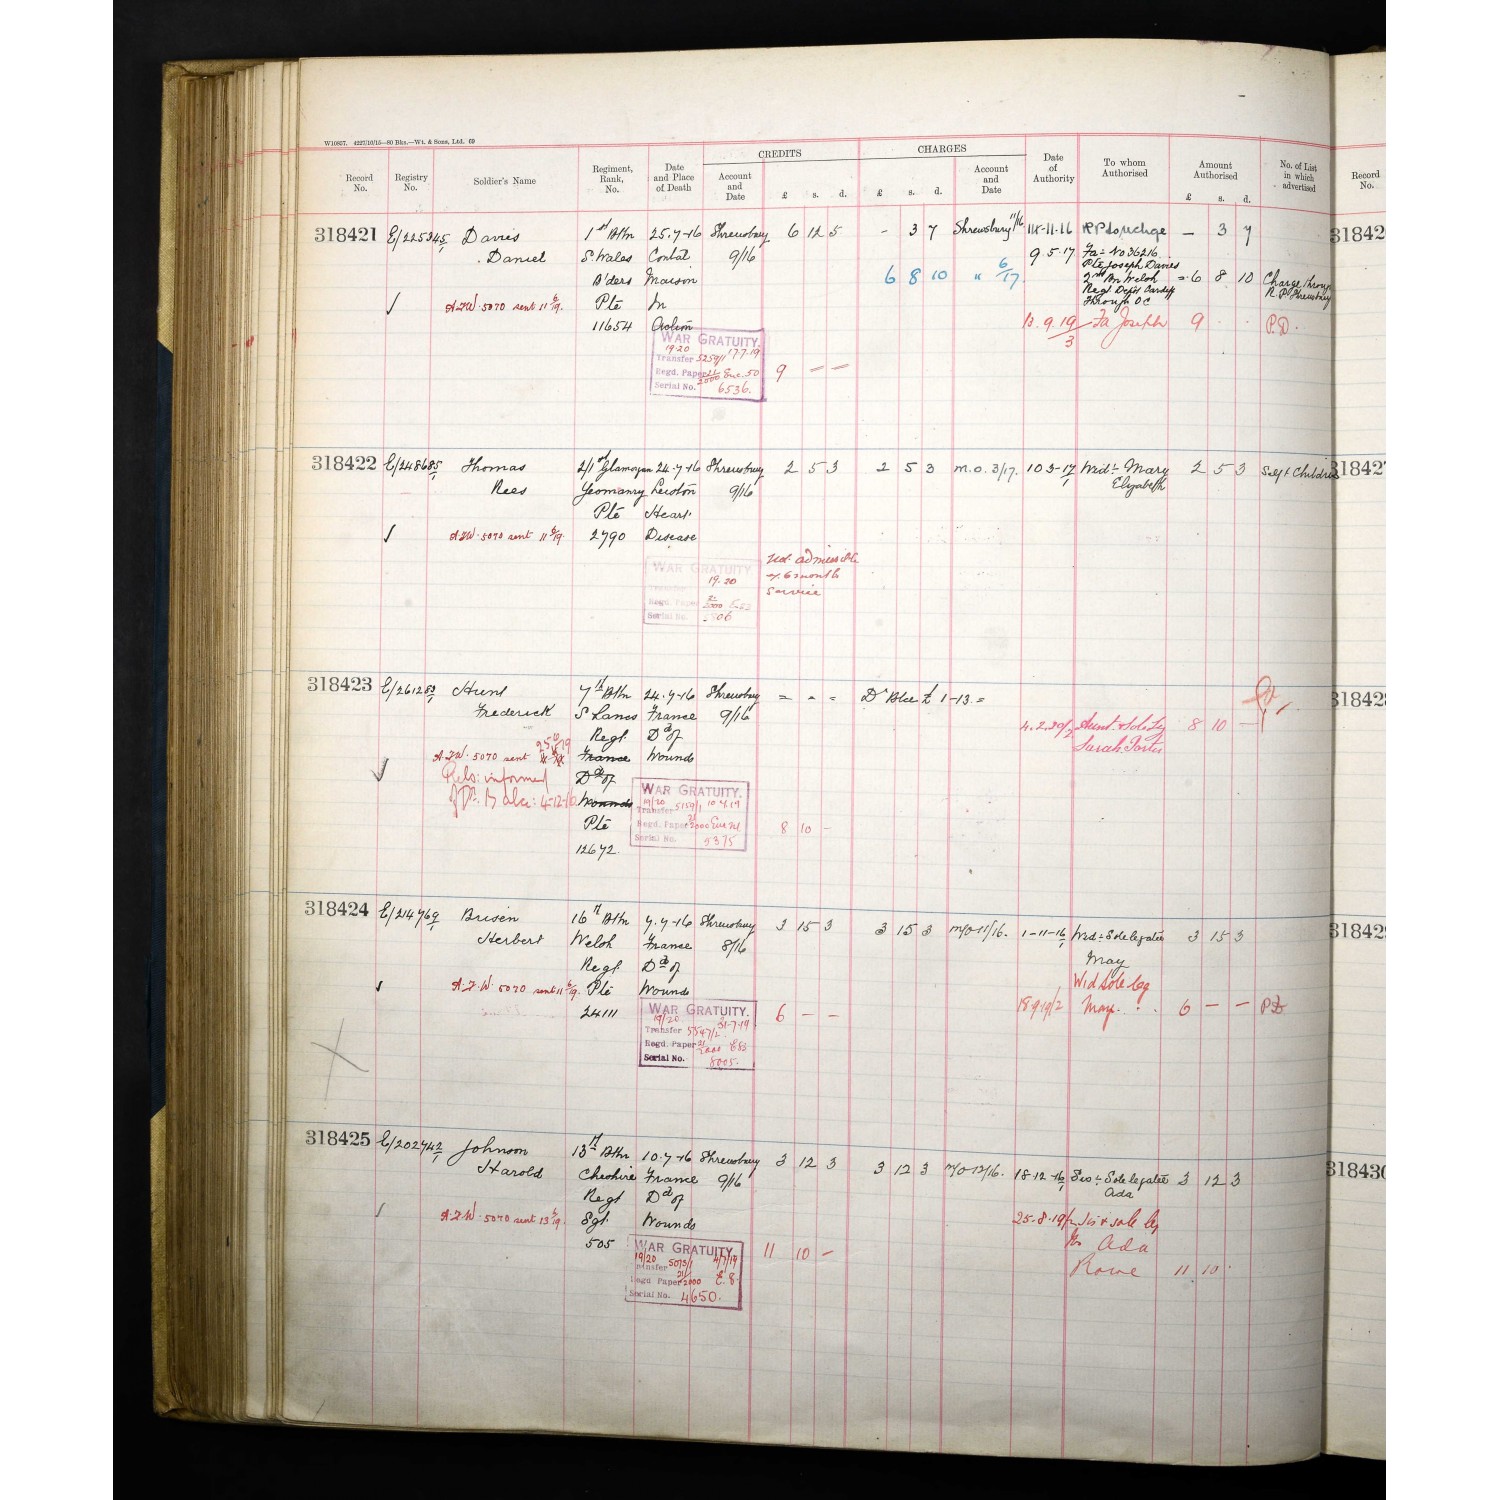 W10807. 4227/10/15—80 Bks.—Wt. & Sons, Ltd. 69
Record No.
Registry No.
Soldier's Name
Regiment, Rank, No.
Date and Place of Death
CREDITS
Account and Date
£ s. d.
CHARGES
£ s. d.
Account and Date
Date of Authority
To whom Authorised
Amount Authorised
£ s. d.
No. of List in which advertised
Record No.
318421 E/225345/1 Davies 1st Bttn 25.7.16 Shrewsbury 6 12 5 - 3 7 Shrewsbury 11/16 11.11.16 - 3 7
Daniel S. Wales Contal 9/16 9.5.17 Fa: No 36216
B'ders Maison 6 8 10 " 6/17 Pte Joseph Davies
2nd Bn Welsh = 6 8 10 Charge through
Regt Depot Cardiff R.P. Shrewsbury
through OC
A.F.W. 5070 sent 11 6/19. Pte In
11654 Action 13.9.19/3 Fa Joseph 9 . . P.D.
WAR GRATUITY.
19.20 17.7.19
Transfer 5259/1
Regd. Paper 21/2000 Enc. 50 9 — —
Serial No. 6536.
318422 E/248685/1 Thomas 2/1st Glamorgan 24.7.16 Shrewsbury 2 5 3 2 5 3 M.O. 3/17. 10 3-17/1 Wid: Mary 2 5 3 Self & Children
Rees Yeomanry Leiston 9/16 Elizabeth
Pte Heart
A.F.W. 5070 sent 11 6/19. 2790 Disease
Not admissible
6 months
service
WAR GRATUITY
19.20
Regd. Paper 21/2000
Serial No.
318423 E/261283/1 Hunt 7th Bttn 24.7.16 Shrewsbury = = = Dr Blce £ 1-13 =
Frederick S Lancs France 9/16 4.2.30/2 Aunt & Sole Leg 8 10 —
Regt. Dd of Sarah Porter
A.F.W. 5070 sent France Wounds
Rels: informed Dd of
of Dr. Balce: 4-12-16 Wounds
Pte
12672.
WAR GRATUITY.
19/20
Transfer 5159/1
Regd. Paper 21/2000 8 10 -
Serial No. 5375
318424 E/214769/1 Brisen 16th Bttn 7.7.16 Shrewsbury 3 15 3 3 15 3 M/O 11/16. 1-11-16/1 Wid: Sole legatee 3 15 3
Herbert Welsh France 8/16 May
Regt. Dd of Wid Sole leg
A.F.W. 5070 sent 11 6/19. Pte Wounds 18.9.19/2 May. 6 — — P.D.
24111
WAR GRATUITY.
19/20 31-7-19
Transfer 5547/2 6 — —
Regd. Paper 21/2000 E83
Serial No. 8005.
318425 E/202742/1 Johnson 13th Bttn 10.7.16 Shrewsbury 3 12 3 3 12 3 M/O 12/16. 18-12-16/1 Sis: Sole legatee 3 12 3
Harold Cheshire France 9/16 Ada
Regt Dd of
A.F.W. 5070 sent 13 6/19. Sgt. Wounds 25.8.19/2 Sis & sole leg
505 Mrs Ada
Rowe 11 10 .
WAR GRATUITY.
19/20 4/7/19
Transfer 5073/1 11 10 -
Regd Paper 21/2000 E.8.
Serial No. 4650.
318430